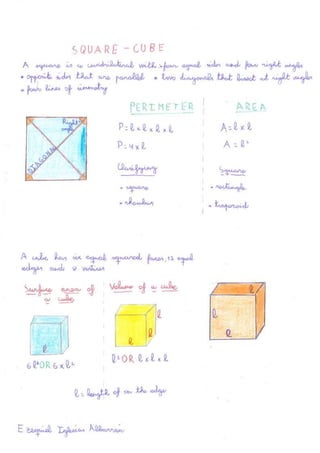 SQUARE - CUBE
A square is a cuadrilateral with four equal sides and four right angles
• opposite sides that are parallel • two diagonals that bisect at right angles
• four lines of simmetry
PERIMETER
AREA
Right angle
DIAGONAL
P=l x l x l x l
A=l x l
P=4xl
A=l²
Classifying
Square
• square
• rectangle
• rhombus
• trapezoid
A cube has six equal squared faces, 12 equal
edges and 8 vertices
Surface area of a cube
Volume of a cube
l
l
l
l
l
l
l
6l² OR 6xl²
l³ OR l x l x l
l = length of the edge
Ezequiel Iglesias